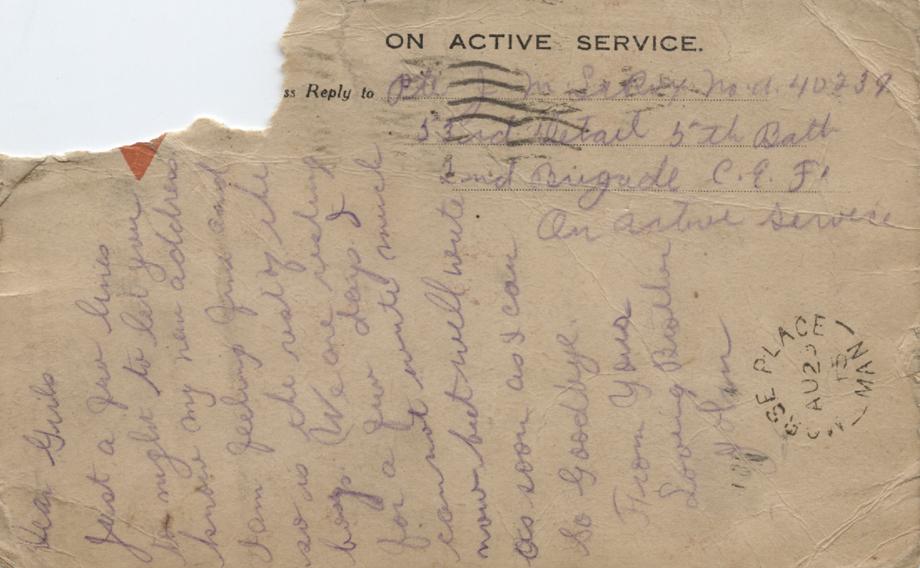 ON ACTIVE SERVICE.
ss Reply to Pte J W No a. 40239
53rd Detail 5th Batt
2nd Brigade C. E. F.
On active service
Dear Girls
Just a few lines
to night to let you
know my new address
I am feeling fine and
so is the rest of the
boys. We are resting
for a few days. I
can not write much
now but will write
as soon as I can
So Goodbye.
From Your
Loving Brother
John
SE PLACE
AU 29
15
MAN